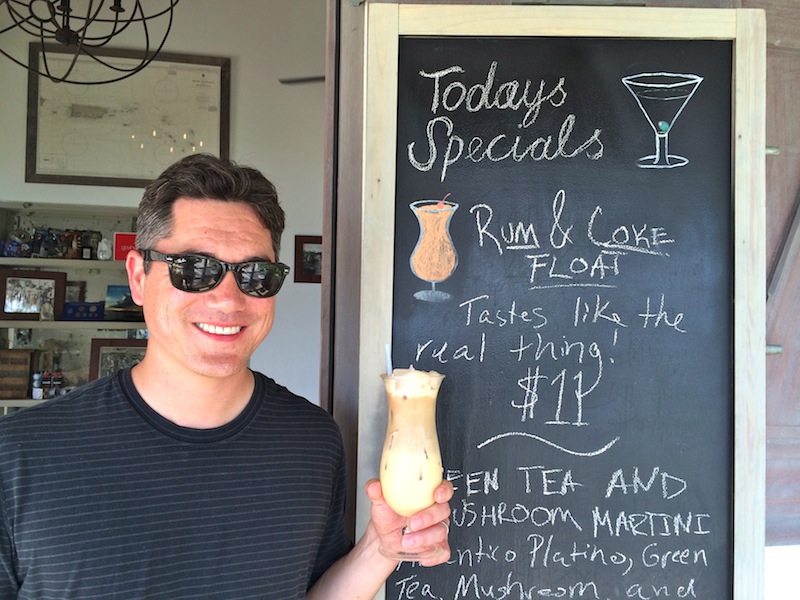 Todays
Specials
RUM & COKE
FLOAT
Tastes like the
real thing!
$11
EEN TEA AND
USHROOM MARTINI
entico Platino, Green
Tea, Mushroom, and